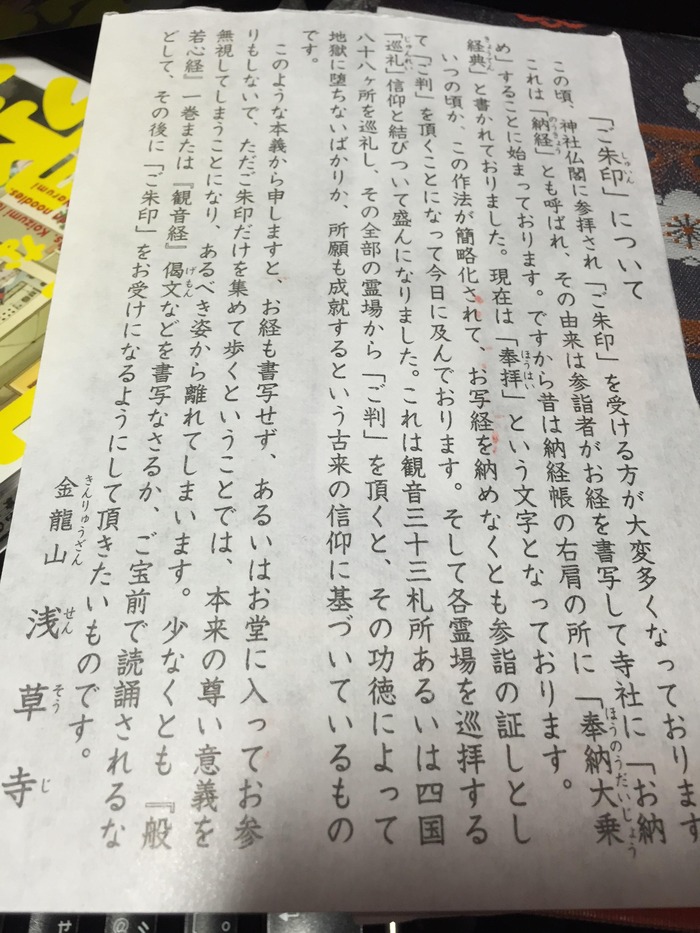 「ご朱印」について
この頃、神社仏閣に参拝され「ご朱印」を受ける方が大変多くなっております
これは「納経」とも呼ばれ、その由来は参詣者がお経を書写して寺社に「お納
め」することに始まっております。ですから昔は納経帳の右肩の所に「奉納大乗
経典」と書かれておりました。現在は「奉拝」という文字となっております。
いつの頃か、この作法が簡略化されて、お写経を納めなくとも参詣の証しとし
て「ご判」を頂くことになって今日に及んでおります。そして各霊場を巡拝する
「巡礼」信仰と結びついて盛んになりました。これは観音三十三札所あるいは四国
八十八ヶ所を巡礼し、その全部の霊場から「ご判」を頂くと、その功徳によって
地獄に堕ちないばかりか、所願も成就するという古来の信仰に基づいているもの
です。
このような本義から申しますと、お経も書写せず、あるいはお堂に入ってお参
りもしないで、ただご朱印だけを集めて歩くということでは、本来の尊い意義を
無視してしまうことになり、あるべき姿から離れてしまいます。少なくとも『般
若心経』一巻または『観音経』偈文などを書写なさるか、ご宝前で読誦されるな
どして、その後に「ご朱印」をお受けになるようにして頂きたいものです。
金龍山 浅草寺